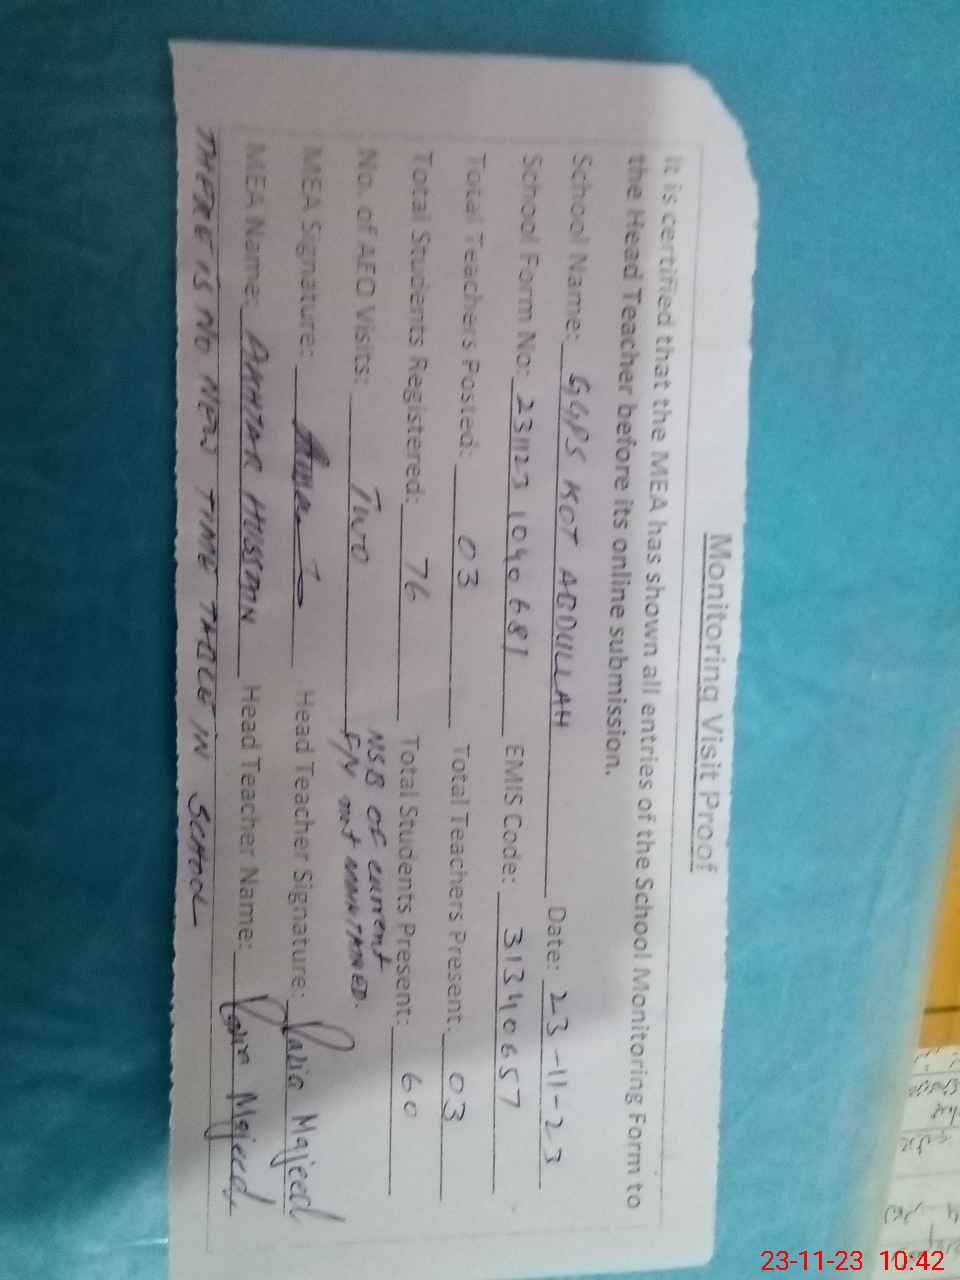 Monitoring Visit Proof
It is certified that the MEA has shown all entries of the School Monitoring Form to
the Head Teacher before its online submission.
School Name: GGPS KOT ABDULLAH Date: 23-11-23
School Form No: 231123 1040681 EMIS Code: 31340657
Total Teachers Posted: 03 Total Teachers Present: 03
Total Students Registered: 76 Total Students Present: 60
No. of AEO Visits: Two NSB OF current
F/N not MAINTAINED.
MEA Signature: Head Teacher Signature: Majeed
MEA Name: AKHTAR HUSSAIN Head Teacher Name: Majeed
THERE IS NO NEW TIME TABLE IN SCHOOL
23-11-23 10:42